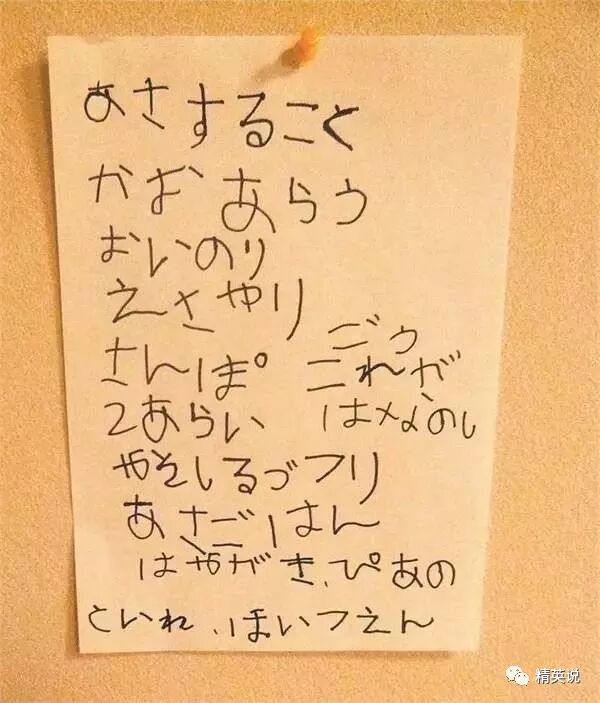 あさすること
かおあらう
おいのり
えさやり
さんぽ
2あらい
ごう
これが
はなのし
やそしるづフリ
あさごはん
はやがき、ぴあの
といれ、ほいつえん
精英说